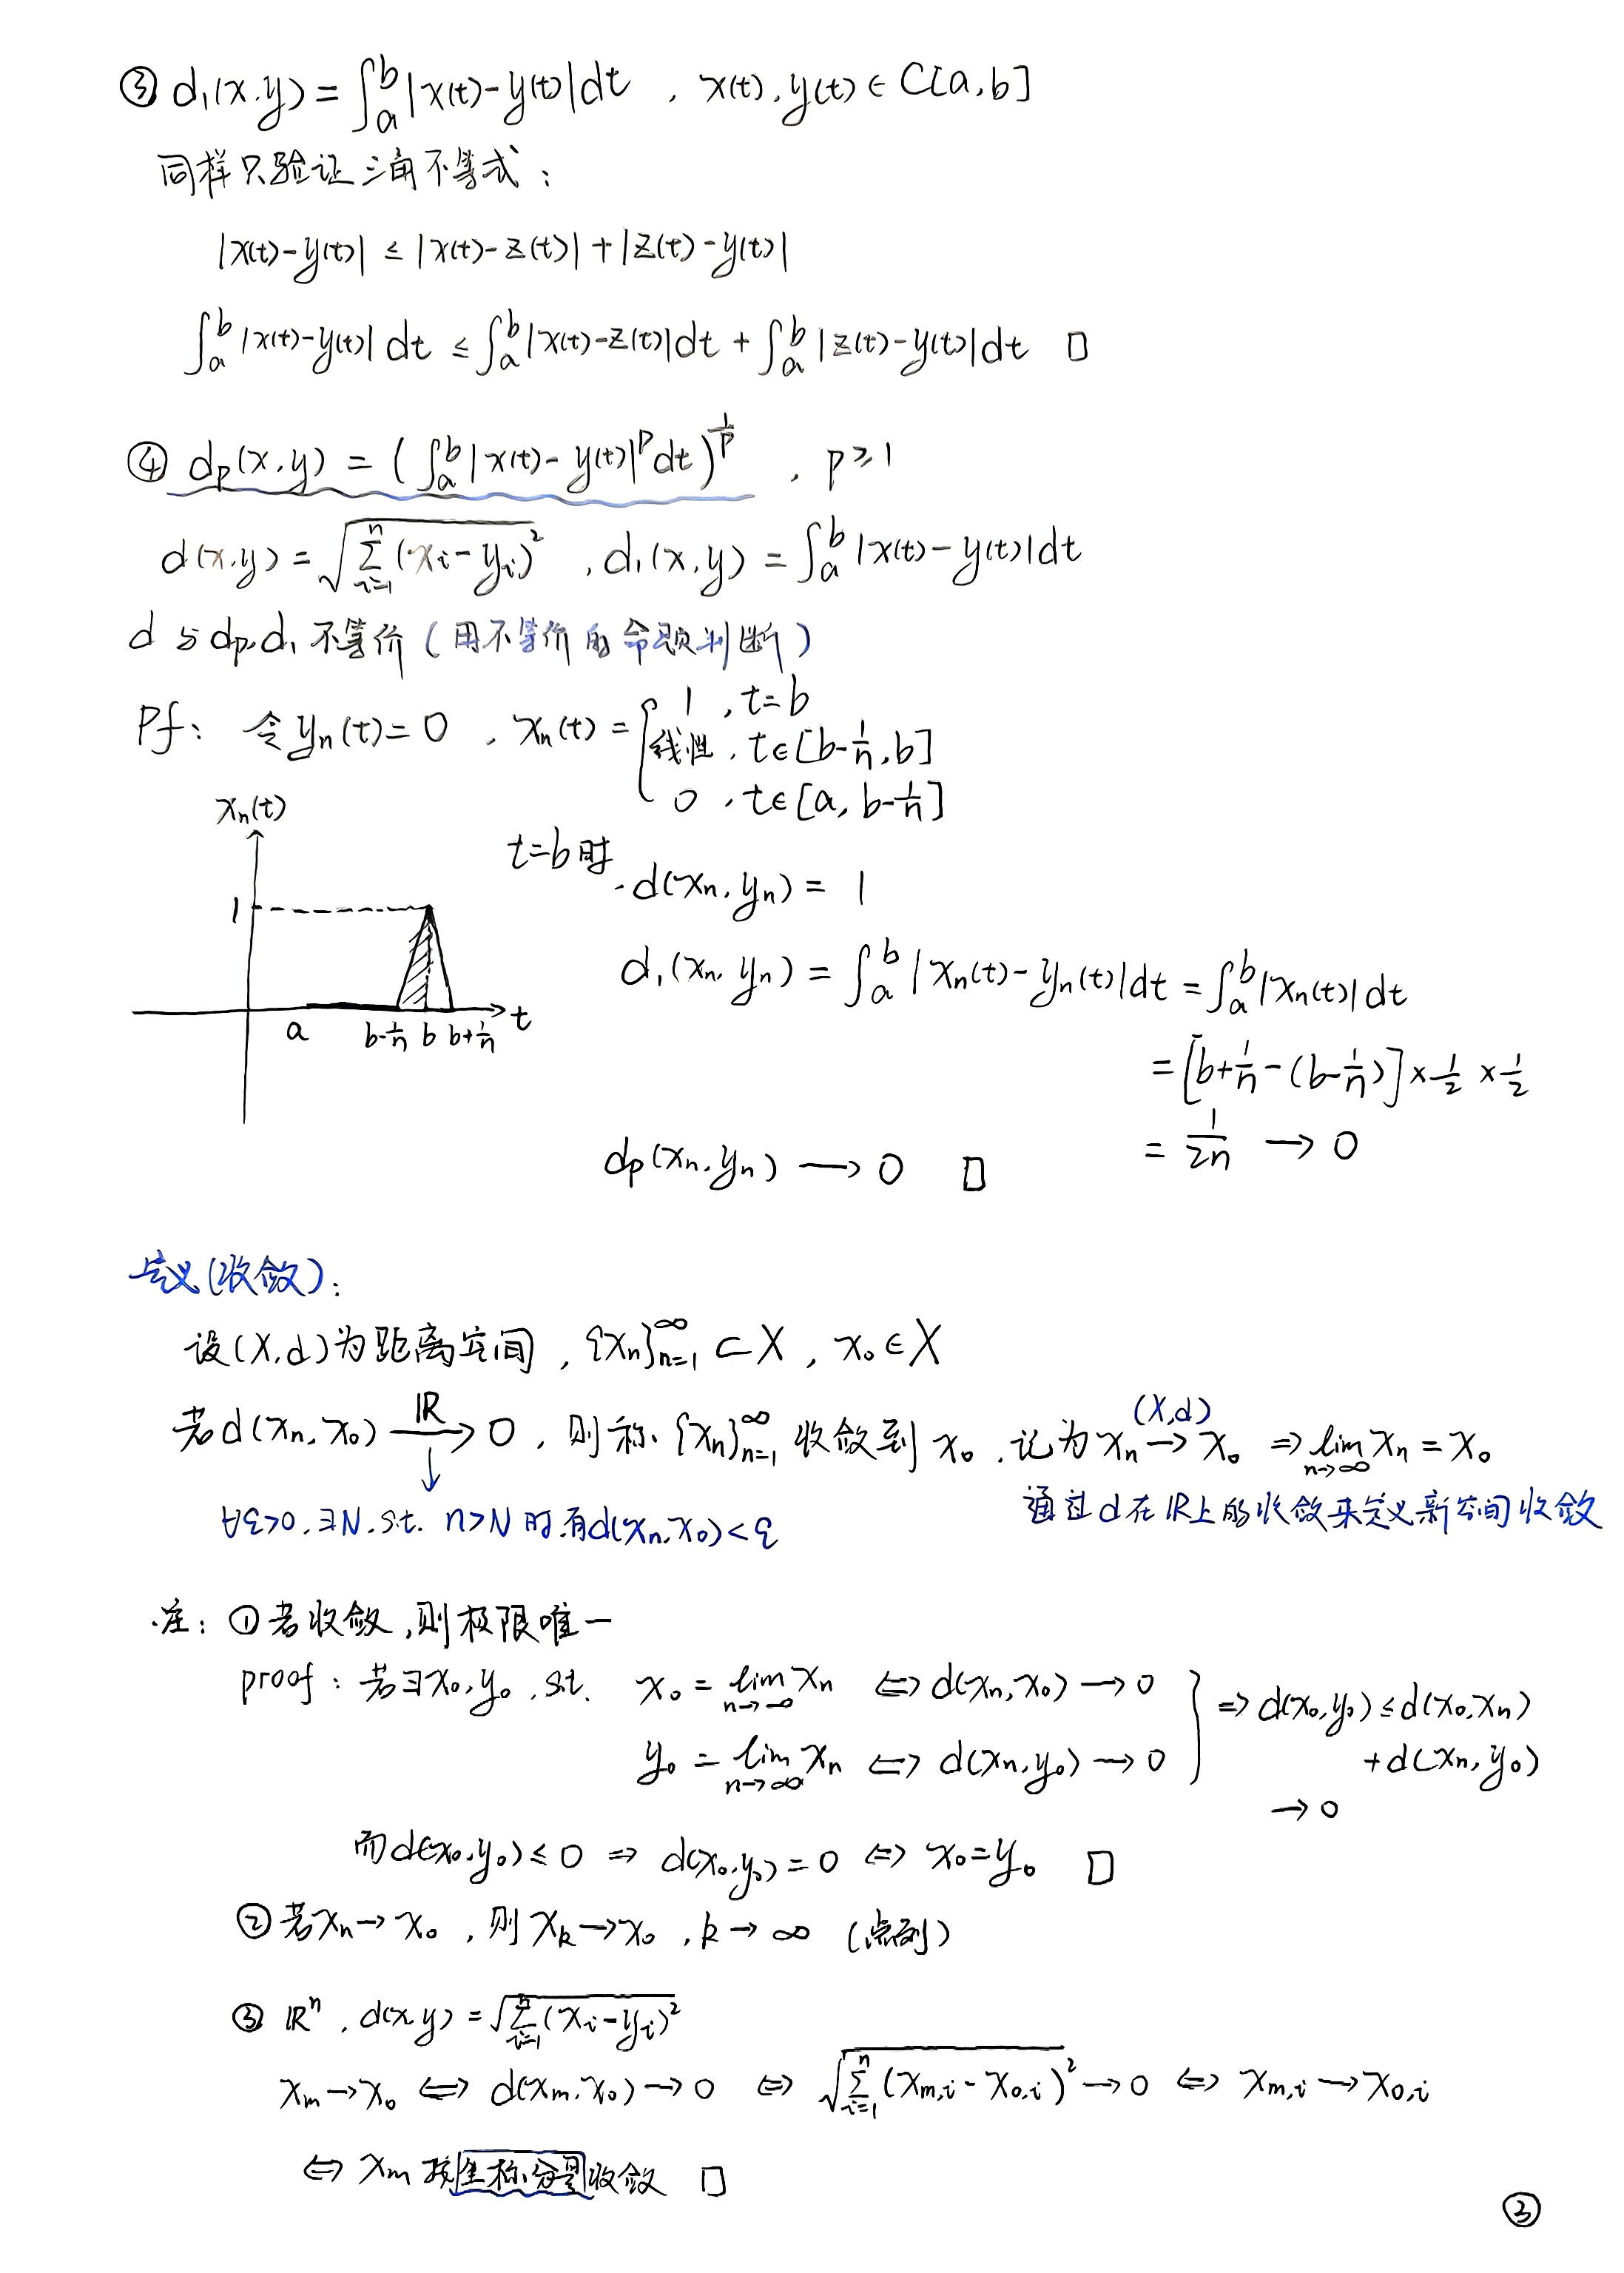 ③ d₁(x,y) = ∫ₐᵇ |x(t)-y(t)|dt , x(t),y(t) ∈ C[a,b]
同样只验证三角不等式：
|x(t)-y(t)| ≤ |x(t)-z(t)| + |z(t)-y(t)|
∫ₐᵇ |x(t)-y(t)| dt ≤ ∫ₐᵇ |x(t)-z(t)|dt + ∫ₐᵇ |z(t)-y(t)|dt □
④ dₚ(x,y) = (∫ₐᵇ |x(t)-y(t)|ᵖ dt)^{1/p} , p ≥ 1
d(x,y) = √(∑_{i=1}^{n} (xᵢ-yᵢ)²) , d₁(x,y) = ∫ₐᵇ |x(t)-y(t)|dt
d 与 dₚ,d₁ 不等价（用不等价的命题判断）
Pf： 令 yₙ(t)=0 , xₙ(t) = { 1 , t=b
线性 , t∈[b-1/n,b]
0 , t∈[a, b-1/n]
xₙ(t)
1
a b-1/n b b+1/n t
t=b时, d(xₙ,yₙ) = 1
d₁(xₙ,yₙ) = ∫ₐᵇ |xₙ(t)-yₙ(t)|dt = ∫ₐᵇ |xₙ(t)|dt
= [b+1/n-(b-1/n)]×1/2×1/2
= 1/2n → 0
dₚ(xₙ,yₙ) → 0 □
定义(收敛)：
设(X,d)为距离空间 , {xₙ}_{n=1}^{∞} ⊂ X , x₀ ∈ X
若 d(xₙ,x₀) →^{ℝ} 0 , 则称 {xₙ}_{n=1}^{∞} 收敛到 x₀ , 记为 xₙ →^{(X,d)} x₀ ⇒ lim_{n→∞} xₙ = x₀
↓
∀ε>0,∃N,s.t. n>N 时,有d(xₙ,x₀)<ε
通过 d 在 ℝ上的收敛来定义新空间收敛
注：①若收敛,则极限唯一
proof：若∃x₀,y₀,s.t. x₀ = lim_{n→∞} xₙ ⇔ d(xₙ,x₀) → 0
y₀ = lim_{n→∞} xₙ ⇔ d(xₙ,y₀) → 0
} ⇒ d(x₀,y₀) ≤ d(x₀,xₙ)
+ d(xₙ,y₀)
→ 0
而 d(x₀,y₀) ≤ 0 ⇒ d(x₀,y₀) = 0 ⇔ x₀=y₀ □
②若xₙ→x₀ , 则 xₖ→x₀ , k→∞ (点列)
③ ℝⁿ , d(x,y) = √(∑_{i=1}^{n} (xᵢ-yᵢ)²)
xₘ→x₀ ⇔ d(xₘ,x₀)→0 ⇔ √(∑_{i=1}^{n} (x_{m,i}-x_{0,i})²) → 0 ⇔ x_{m,i} → x_{0,i}
⇔ xₘ 按坐标分量收敛 □
③